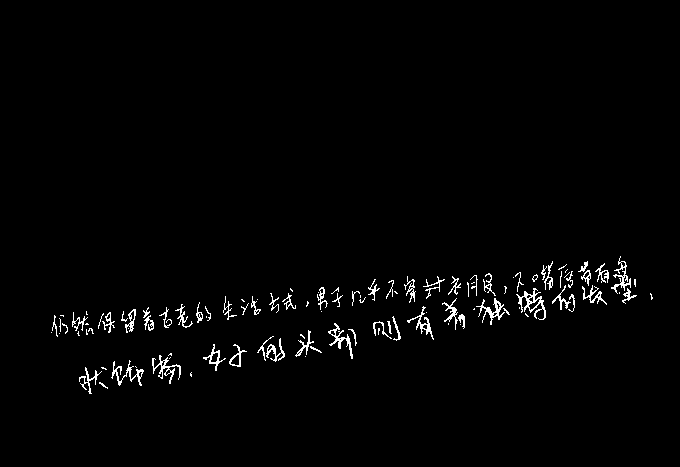 仍然保留着古老的生活方式,男子几乎不穿衣服,下嘴唇带有盘
状饰物,女子的头部则有着独特的发型,